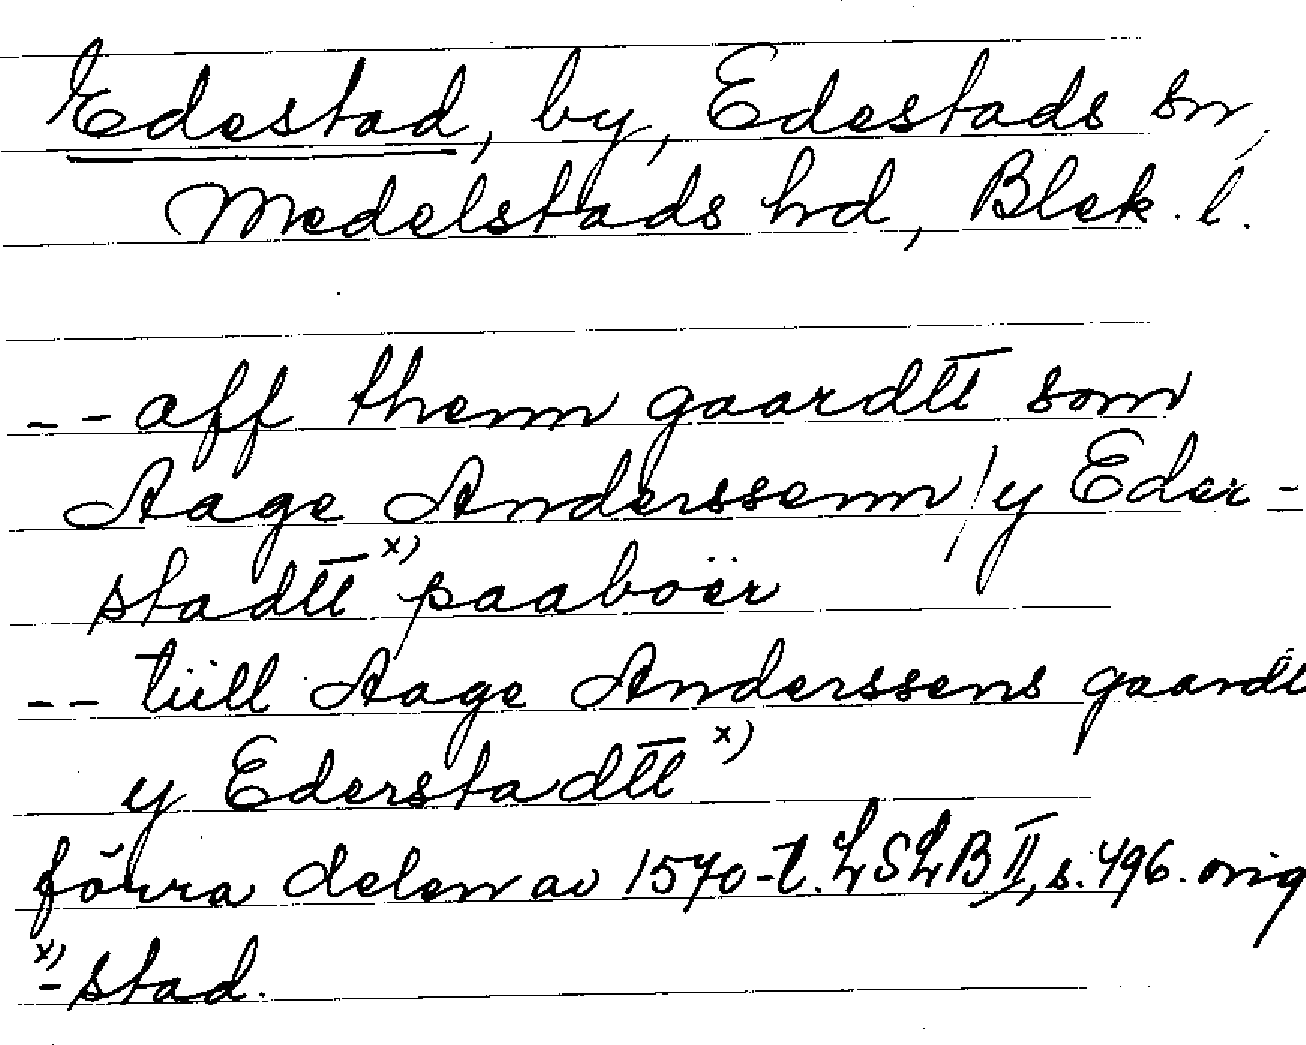 Edestad, by, Edestads sn,
Medelstads hd, Blek. l.
-- aff them gaardtt som
Aage Anderssenn / y Eder-
stadtt x) paaboër
-- tiill Aage Anderssens gaardt
y Ederstadtt x)
förra delen av 1570-t. LSLB II, s. 496. orig
x) -stad.